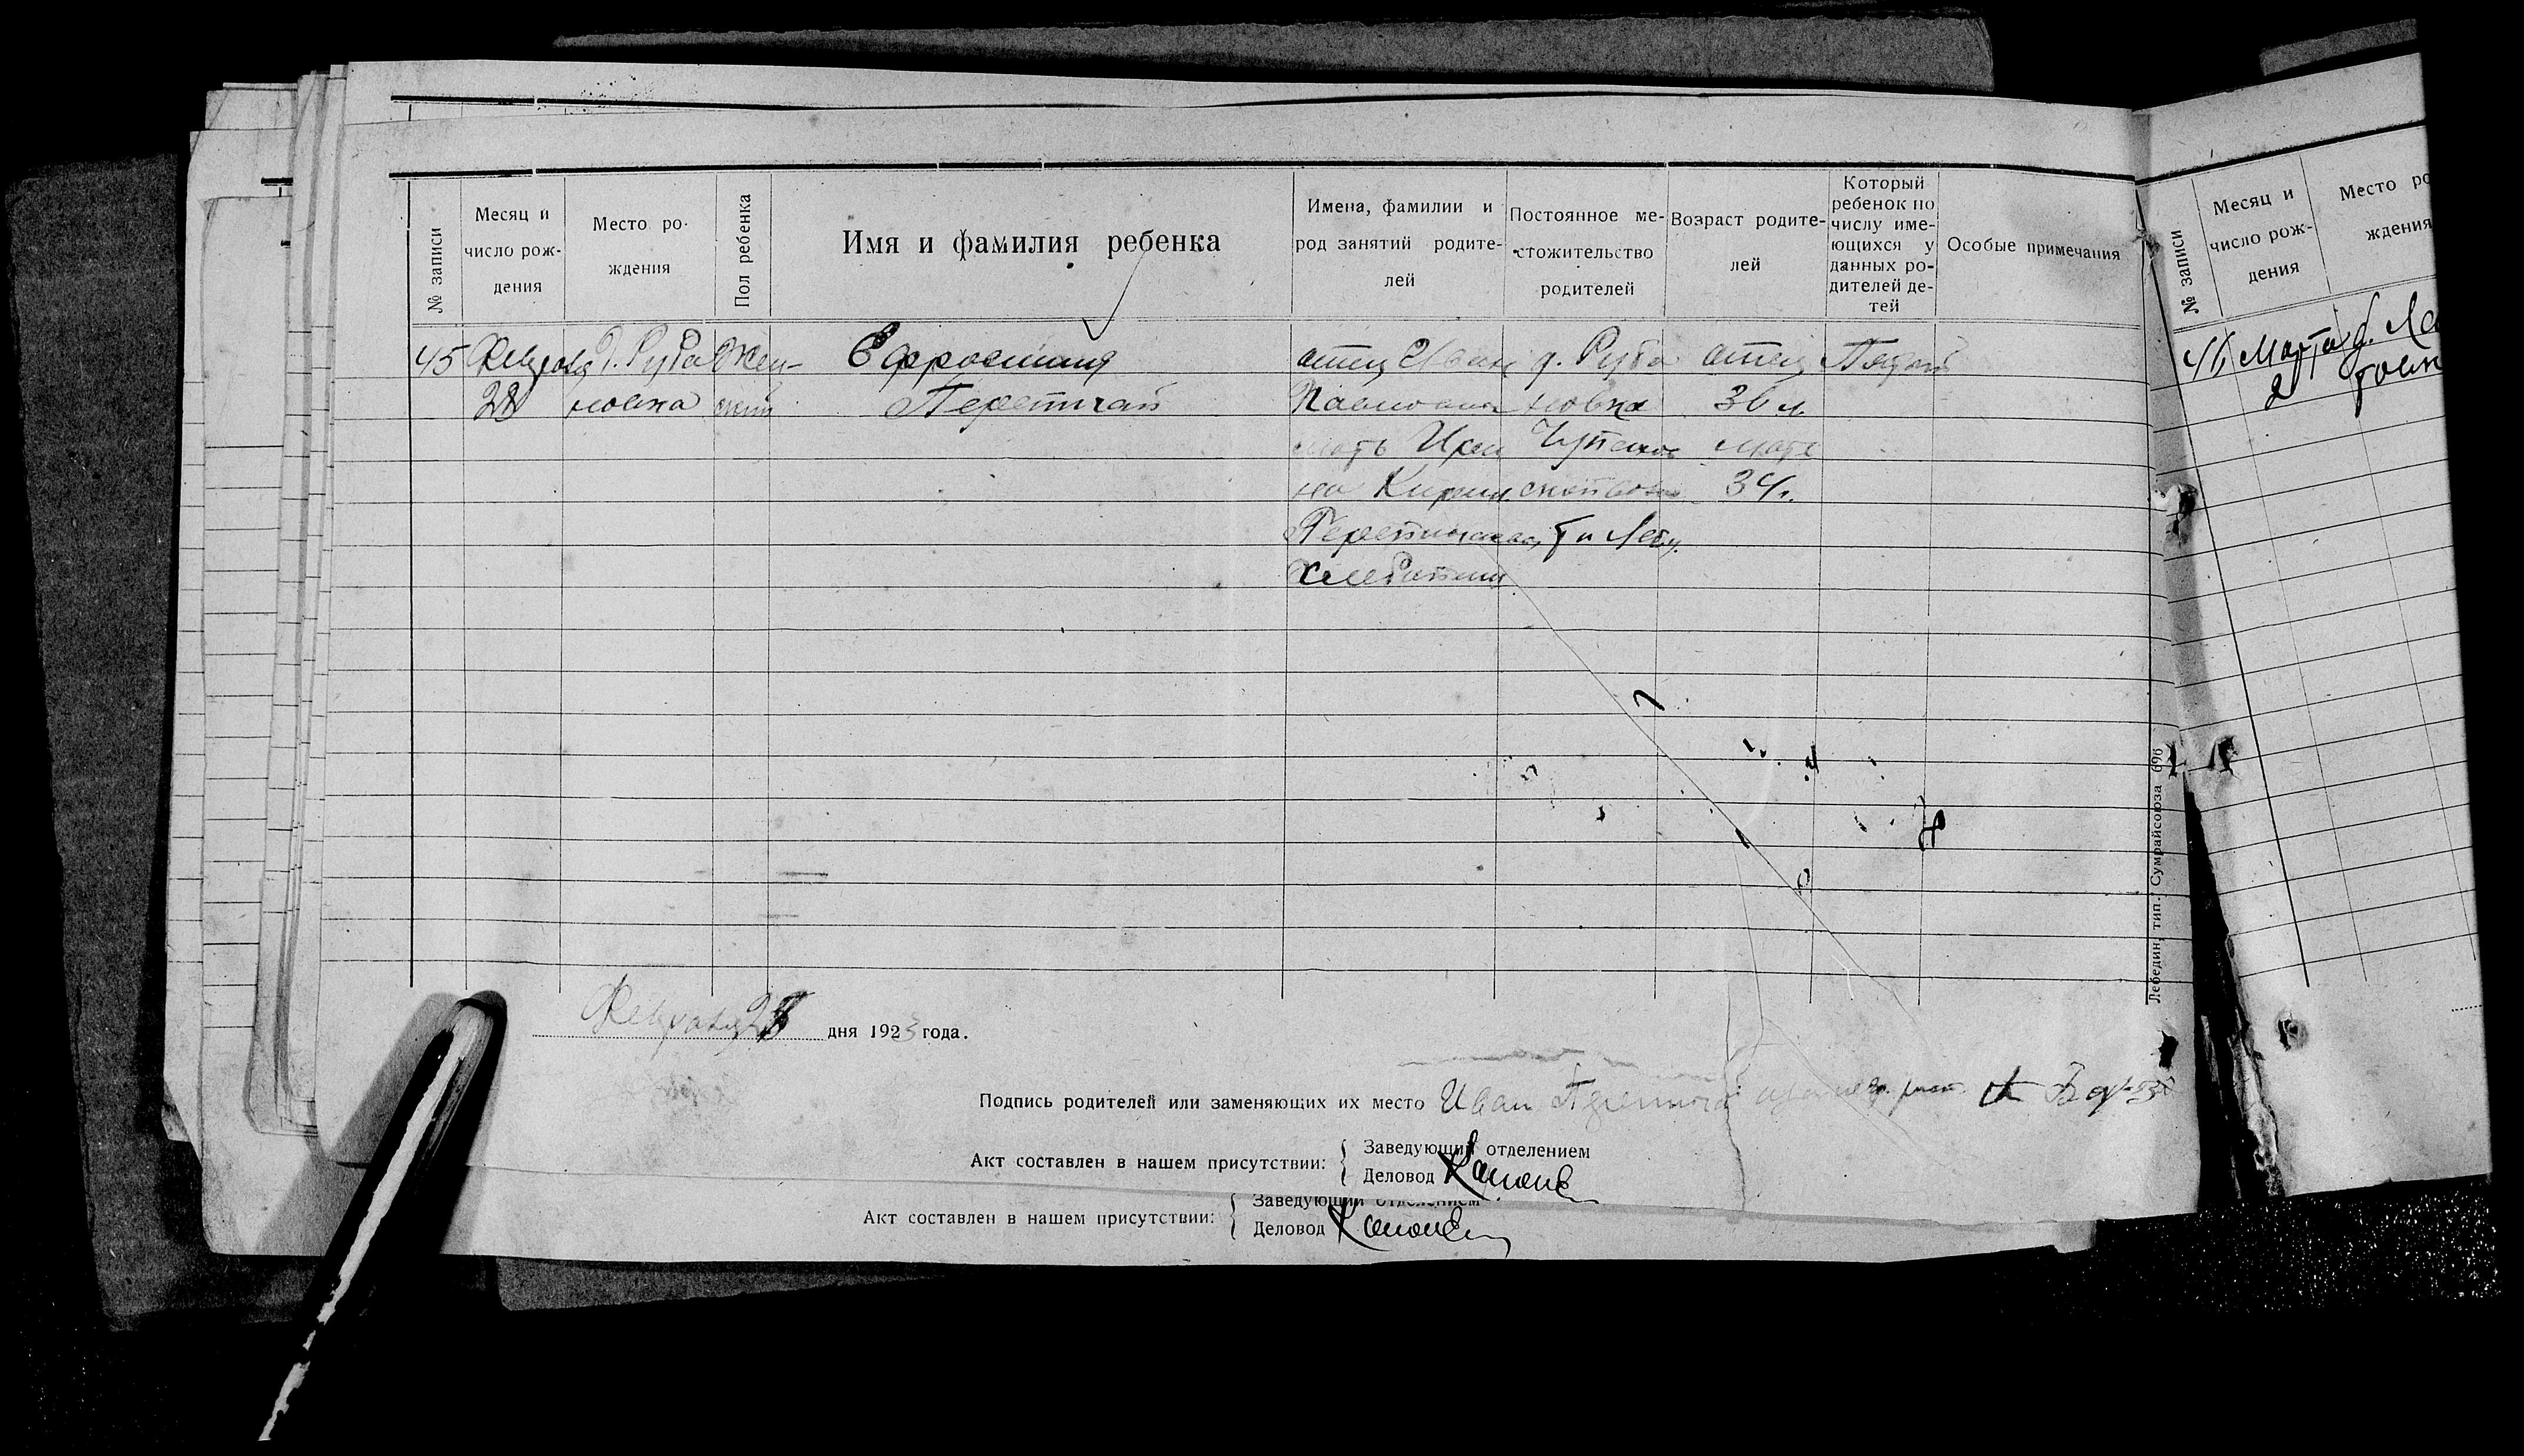 № записи
Месяц и
число рож-
дения
Место ро-
ждения
Пол ребенка
Имя и фамилия ребенка
Имена, фамилии и
род занятий родите-
лей
Постоянное ме-
стожительство
родителей
Возраст родите-
лей
Который
ребенок по
числу име-
ющихся у
данных ро-
дителей де-
тей
Особые примечания
45 Февраля д. Руба Жен-
28 новка ский
Ефросиния
Перетичай
отец Иван
мать Ири
на
д. Руба
новка
отец
36 л.
мать
34 г.
Пятый
Февраля 28 дня 1923 года.
Подпись родителей или заменяющих их место Иван
Акт составлен в нашем присутствии:
Заведующий отделением
Деловод
Акт составлен в нашем присутствии:
Заведующий отделением
Деловод
Лебедин, тип. Сумрайсоюза 696
№ записи
Месяц и
число рож-
дения
Место ро
ждения
46 Марта д.
2